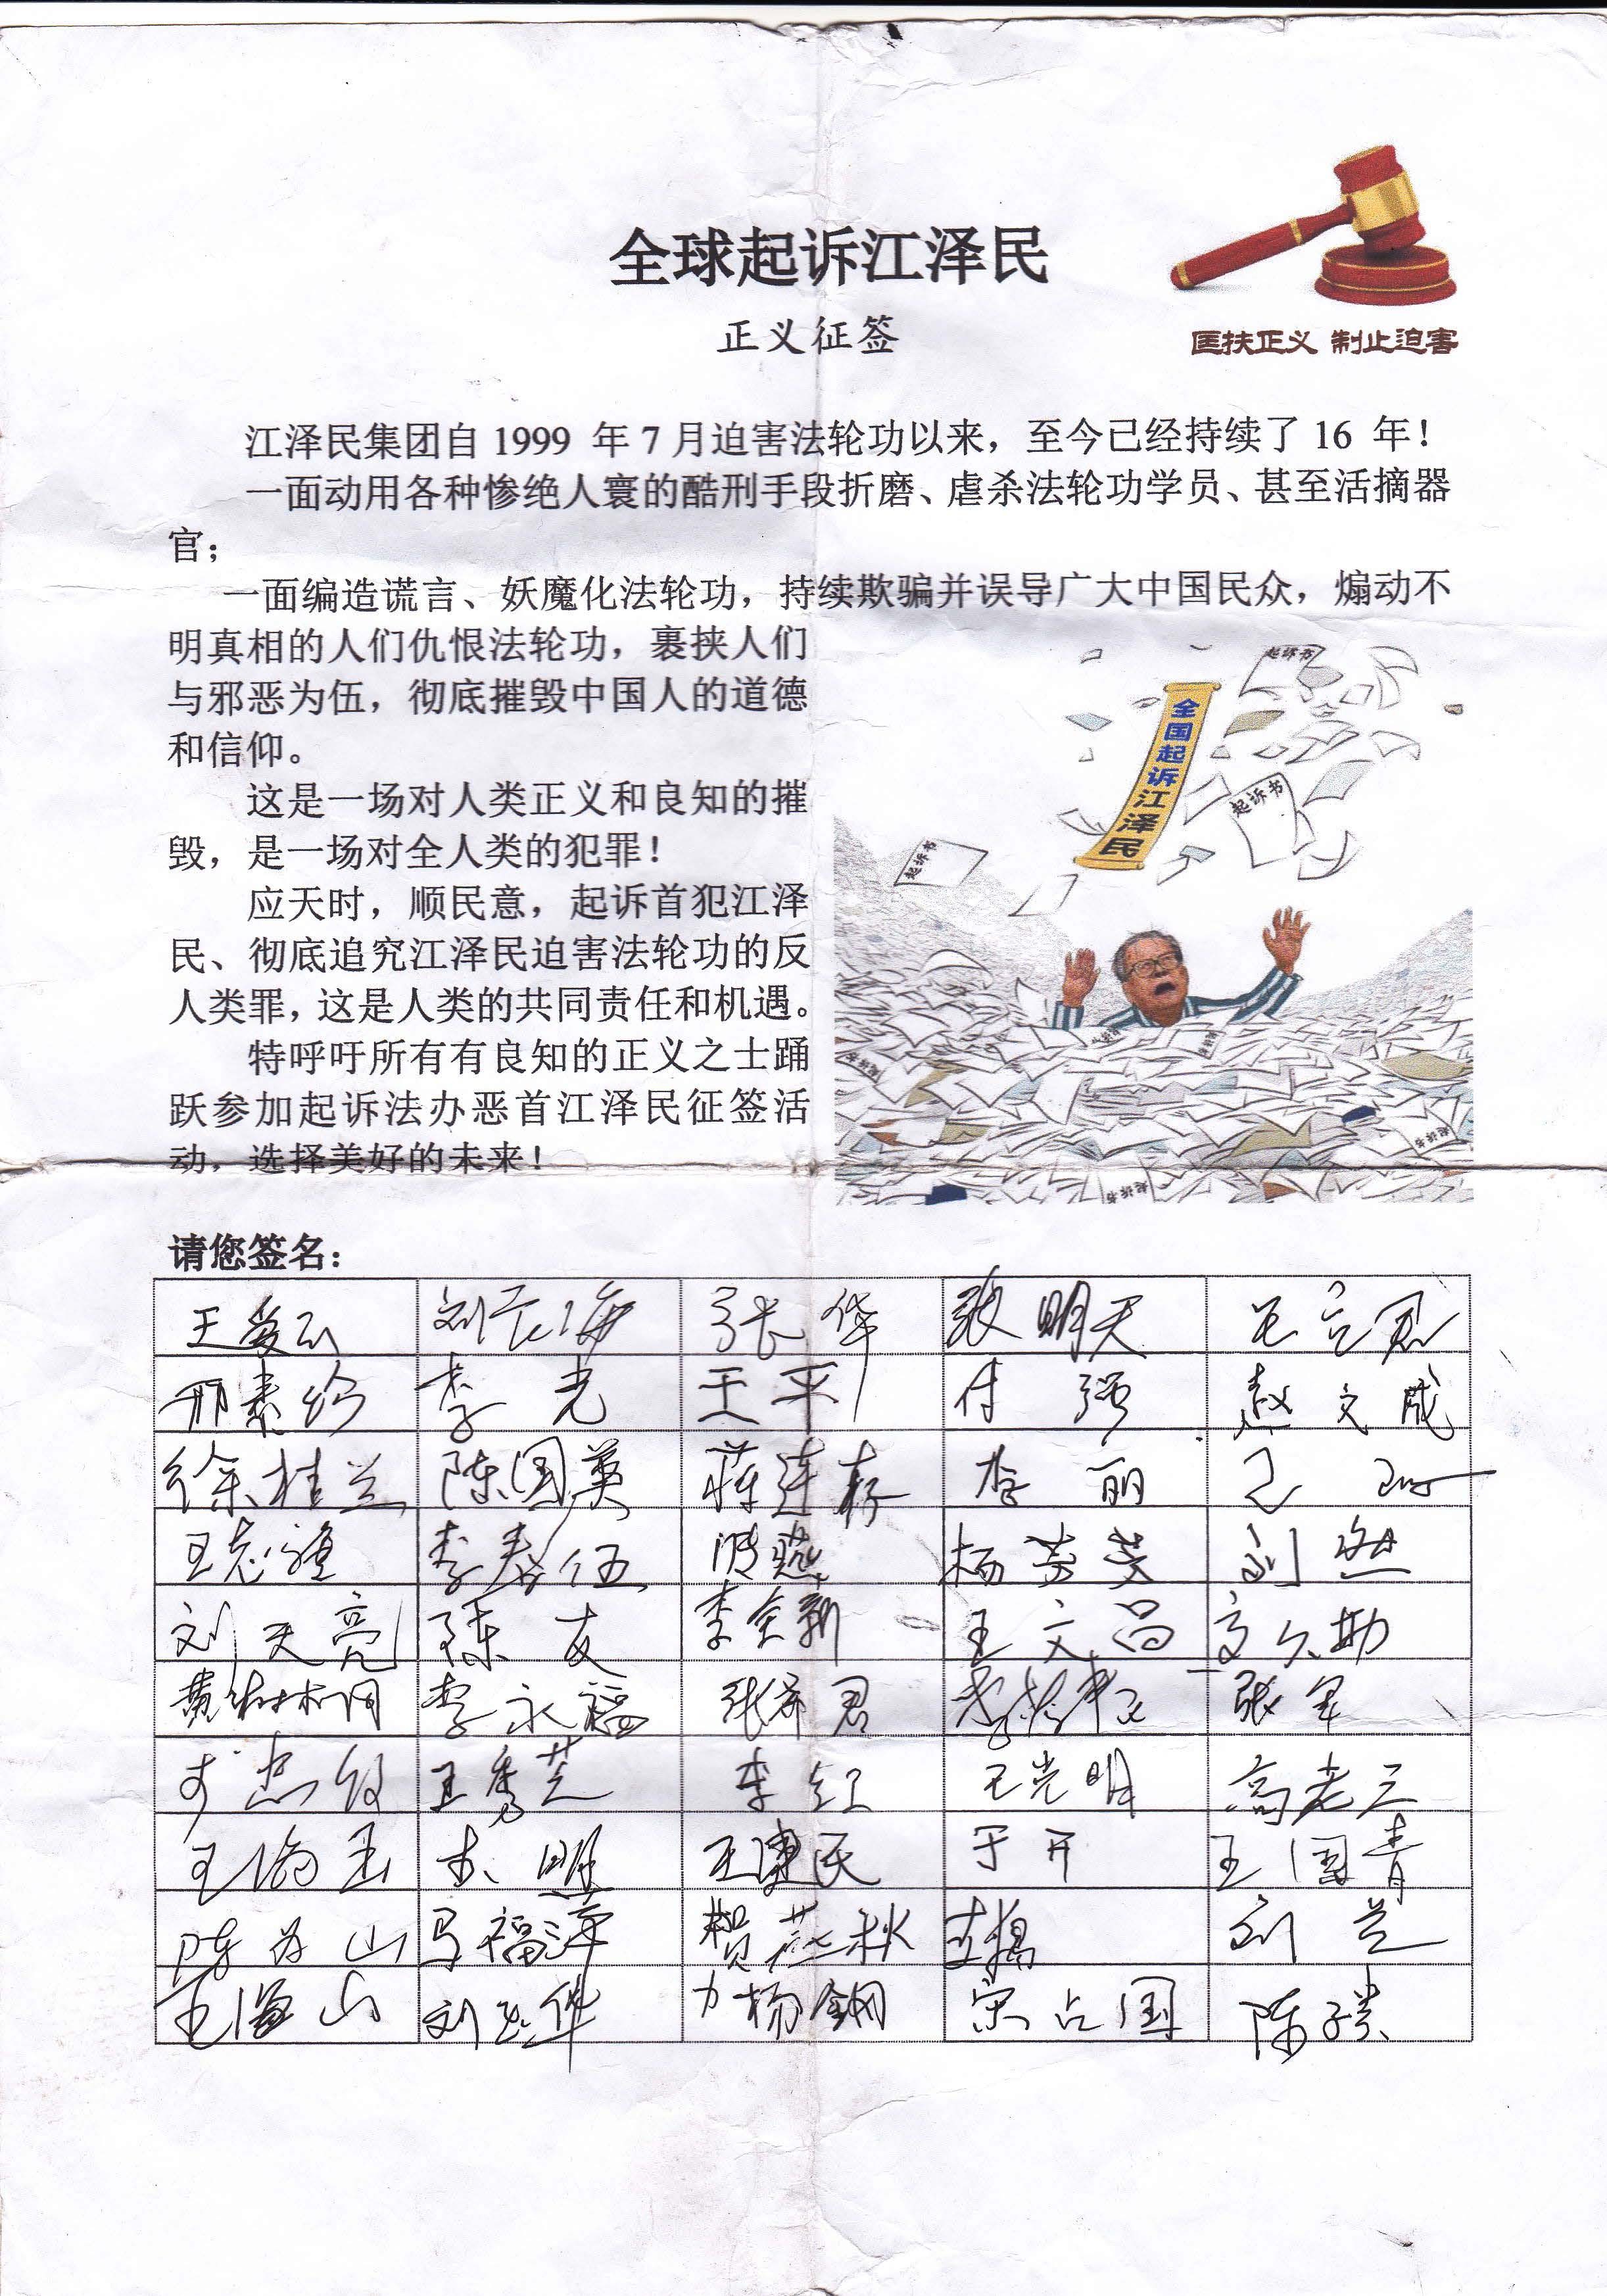 全球起诉江泽民
正义征签
匡扶正义 制止迫害
江泽民集团自 1999 年 7 月迫害法轮功以来，至今已经持续了 16 年！
一面动用各种惨绝人寰的酷刑手段折磨、虐杀法轮功学员、甚至活摘器
官；
一面编造谎言、妖魔化法轮功，持续欺骗并误导广大中国民众，煽动不
明真相的人们仇恨法轮功，裹挟人们
与邪恶为伍，彻底摧毁中国人的道德
和信仰。
这是一场对人类正义和良知的摧
毁，是一场对全人类的犯罪！
应天时，顺民意，起诉首犯江泽
民、彻底追究江泽民迫害法轮功的反
人类罪，这是人类的共同责任和机遇。
特呼吁所有有良知的正义之士踊
跃参加起诉法办恶首江泽民征签活
动，选择美好的未来！
起诉书
全国起诉江泽民
起诉书
起诉书
起诉书
起诉书
请您签名：
张华 张明天
李光 王平 付强 赵文成
徐桂兰 陈国英 李丽
李春伍
刘天亮 陈友 李金新 王文昌
李永福 张军
王秀芝 李红 王光明 高老三
王建民 于开 王国青
马福萍 贺燕秋 刘兰
王海山 宋占国